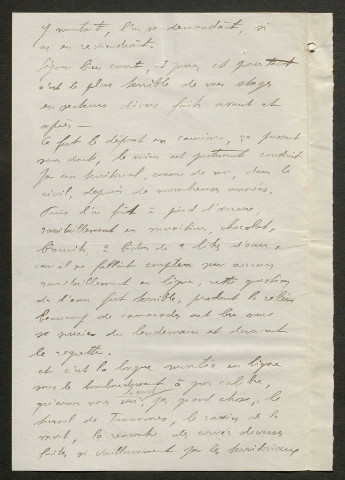 y montant, l'on se demandait, si
on en reviendrait.
Séjour bien court, 3 jours, et pourtant
c'est le plus terrible de mes stages
en secteurs divers faits avant et
après —
Ce fut le départ en camions, se passant
sans doute, le mien est justement conduit
par un territorial, connu de moi, dans le
civil, depuis de nombreuses années.
Puis l'on fit à pied d'œuvre,
ravitaillement en munitions, chocolat,
biscuits, 2 bidons de 2 litres d'eau,
car il ne fallait compter sur aucun
ravitaillement en ligne, cette question
de l'eau fut terrible, pendant la relève
beaucoup de camarades ont bu, sans
se soucier du lendemain et devaient
le regretter.
et c'est la longue montée en ligne
sous le bombardement à gros calibre,
pas grand chose, le
tunnel de Tavannes, le ravin de la
mort, la rencontre des corvées diverses
faites si vaillamment par les territoriaux